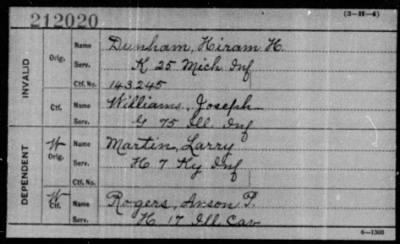 212020
(3-H-4)
INVALID
Orig. Name Dunham, Hiram H.
Serv. K 25 Mich Inf
Ctf. No. 143245
Ctf. Name Williams, Joseph
Serv. G 75 Ill Inf
DEPENDENT
W Orig. Name Martin, Larry
Serv. H 7 Ky Inf
Ctf. No.
W Ctf. Name Rogers, Anson P.
Serv. H 17 Ill Cav